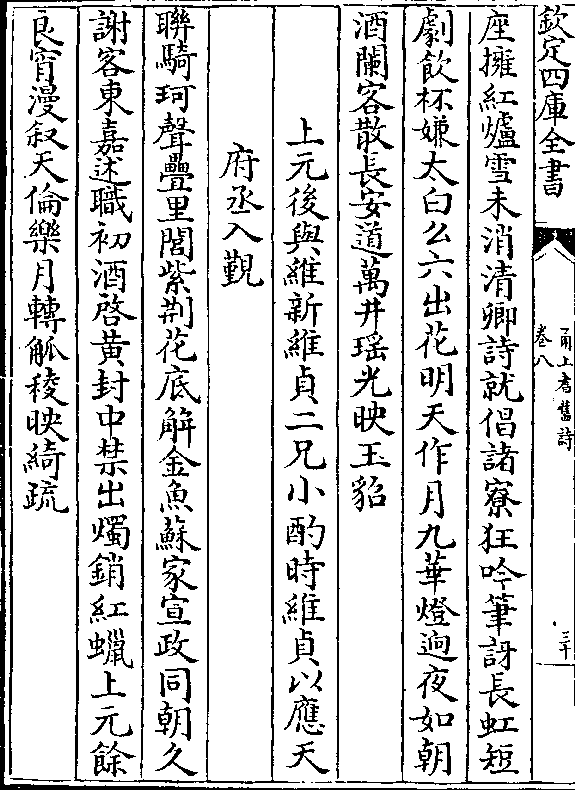 欽定四庫全書
甬上耆舊詩
卷八
三十
座擁紅爐雪未消清卿詩就倡諸寮狂吟筆訝長虹短
劇飲杯嫌太白么六出花明天作月九華燈逈夜如朝
酒闌客散長安道萬井瑶光映玉貂
上元後與維新維貞二兄小酌時維貞以應天
府丞入覲
聯騎珂聲疊里閭紫荆花底解金魚蘇家宣政同朝久
謝客東嘉述職初酒啓黄封中禁出燭銷紅蠟上元餘
良宵漫叙天倫樂月轉觚稜映綺疏